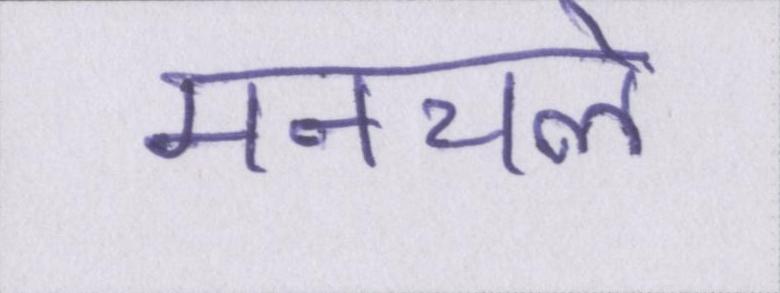 मनचले